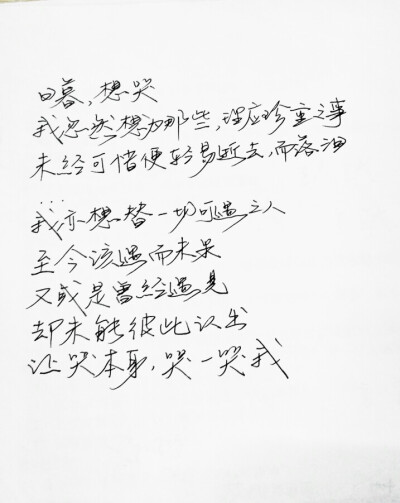 日暮,想哭
我忽然想为那些,理应珍重之事
未经可惜便轻易逝去,而落泪
...
我亦想替一切可遇之人
至今该遇而未果
又或是曾经遇见
却未能彼此认出
让哭本身,哭一哭我